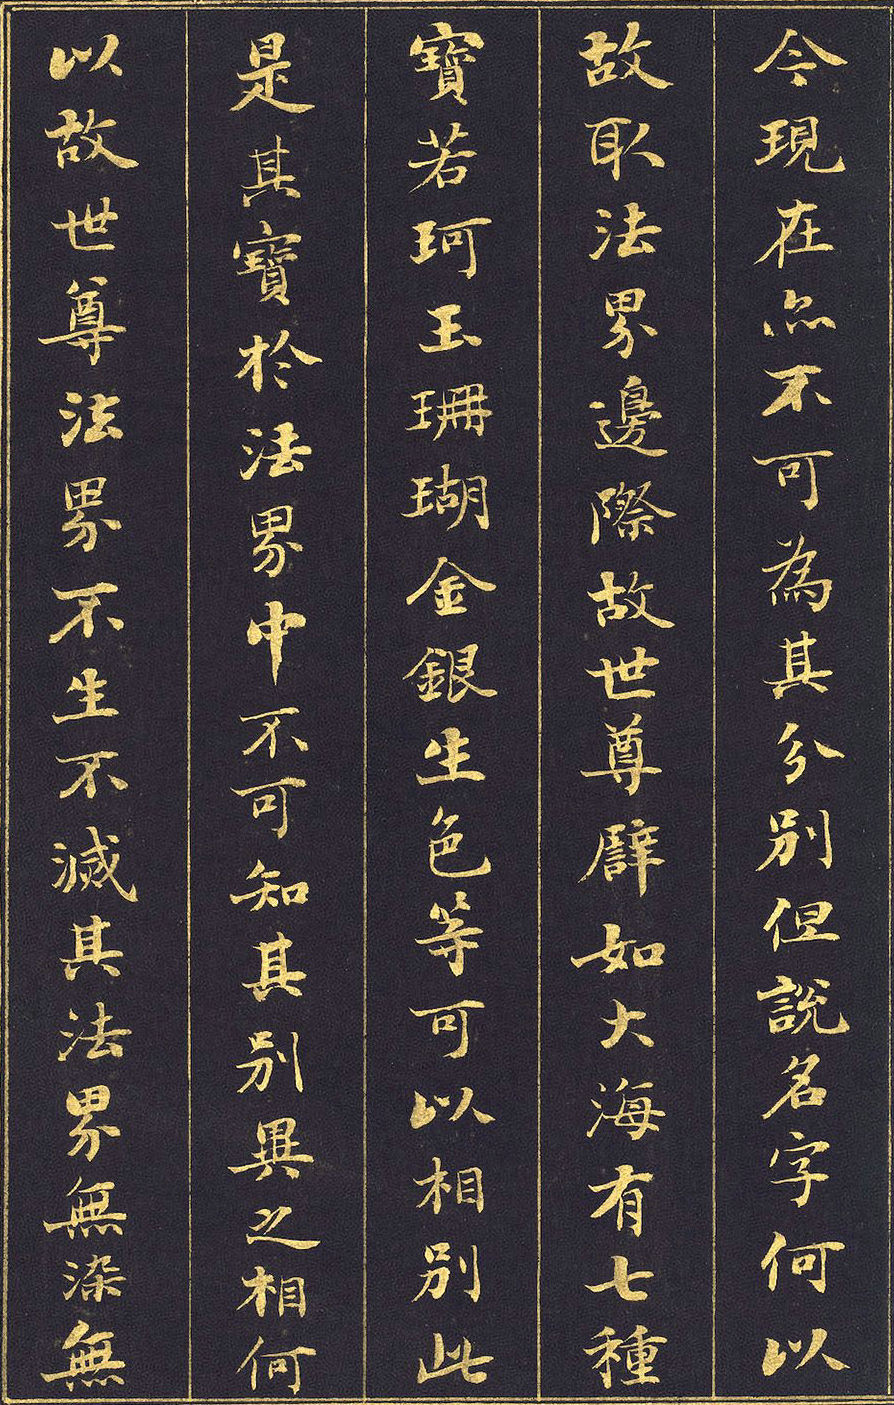 今現在亦不可為其分別但說名字何以
故取法界邊際故世尊譬如大海有七種
寶若珂玉珊瑚金銀生色等可以相別此
是其寶於法界中不可知其別異之相何
以故世尊法界不生不滅其法界無染無